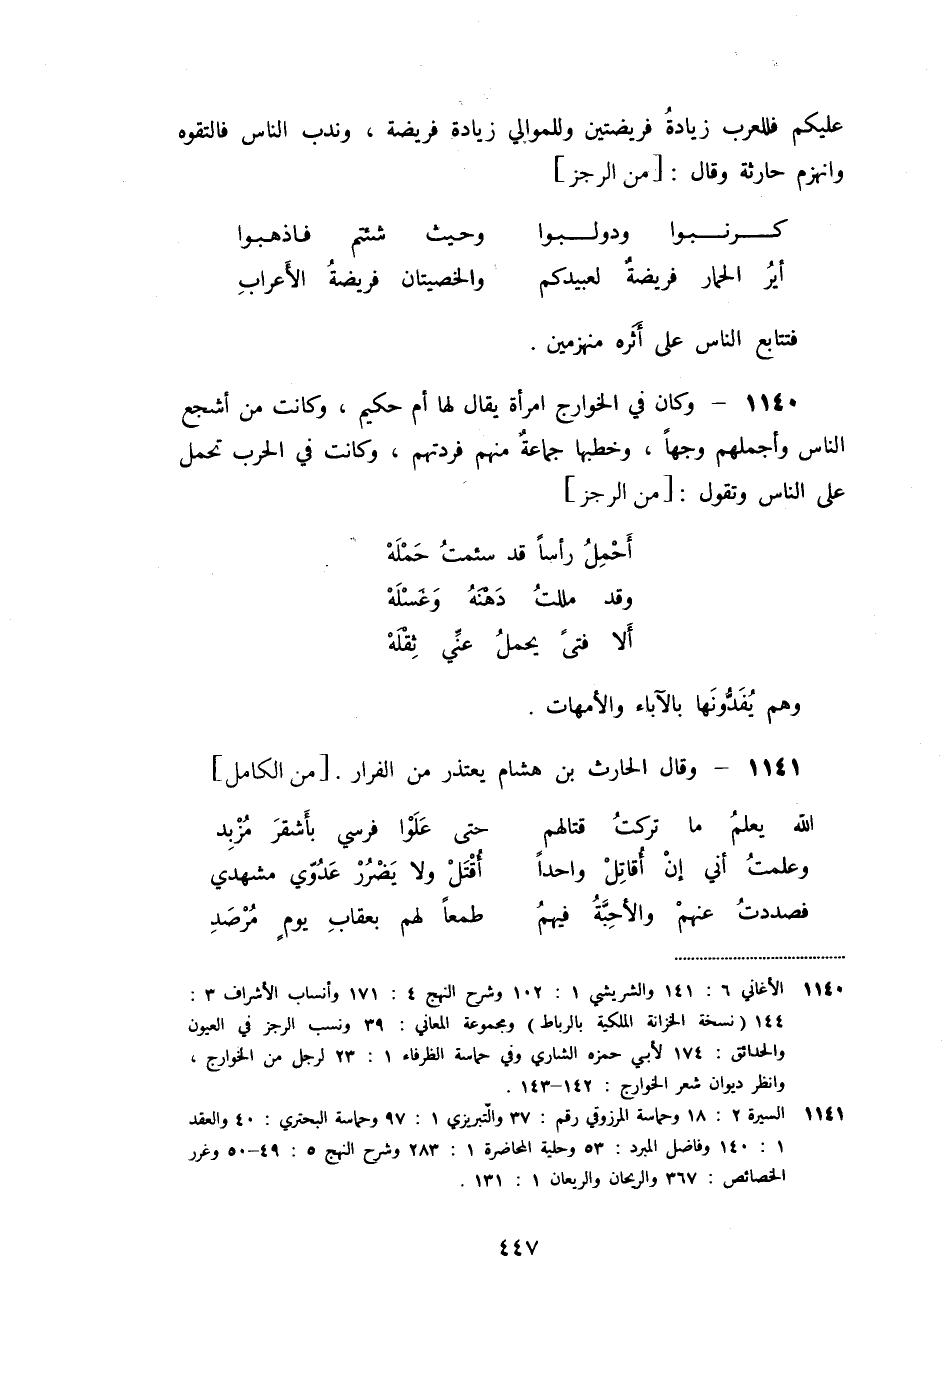 عليكم فللعرب زيادةُ فريضتين وللموالي زيادة فريضة ، وندب الناس فالتقوه
وانهزم حارثة وقال : [ من الرجز ]
كـرنـبـوا ودولـبـوا وحيث شئتم فاذهبوا
أيرُ الحمار فريضةٌ لعبيدكم والخصيتان فريضةُ الأَعرابِ
فتتابع الناس على أَثَره منهزمين .
١١٤٠ – وكان في الخوارج امرأة يقال لها أم حكيم ، وكانت من أشجع
الناس وأجملهم وجهاً ، وخطبها جماعةٌ منهم فردتهم ، وكانت في الحرب تحمل
على الناس وتقول : [ من الرجز ]
أَحْمِلُ رأساً قد سئمتُ حَمْلَهْ
وقد مللتُ دَهْنَهُ وَغَسْلَهْ
أَلا فتىً يحملُ عنِّي ثِقْلَهْ
وهم يُفَدُّونَها بالآباء والأمهات .
١١٤١ – وقال الحارث بن هشام يعتذر من الفرار . [ من الكامل ]
الله يعلمُ ما تركتُ قتالهم حتى عَلَوْا فرسي بأَشقرَ مُزْبِد
وعلمتُ أني إنْ أُقاتِلْ واحداً أُقْتَلْ ولا يَضْرُرْ عَدُوّي مشهدي
فصددتُ عنهمْ والأحِبَّةُ فيهمُ طمعاً لهم بعقابِ يومٍ مُرْصَدِ
١١٤٠ الأغاني ٦ : ١٤١ والشريشي ١ : ١٠٢ وشرح النهج ٤ : ١٧١ وأنساب الأشراف ٣ :
١٤٤ ( نسخة الخزانة الملكية بالرباط ) ومجموعة المعاني : ٣٩ ونسب الرجز في العيون
والحدائق : ١٧٤ لأبي حمزه الشاري وفي حماسة الظرفاء ١ : ٢٣ لرجل من الخوارج ،
وانظر ديوان شعر الخوارج : ١٤٢–١٤٣ .
١١٤١ السيرة ٢ : ١٨ وحماسة المرزوقي رقم : ٣٧ والتّبريزي ١ : ٩٧ وحماسة البحتري : ٤٠ والعقد
١ : ١٤٠ وفاضل المبرد : ٥٣ وحلية المحاضرة ١ : ٢٨٣ وشرح النهج ٥ : ٤٩–٥٠ وغرر
الخصائص : ٣٦٧ والريحان والريعان ١ : ١٣١ .
٤٤٧